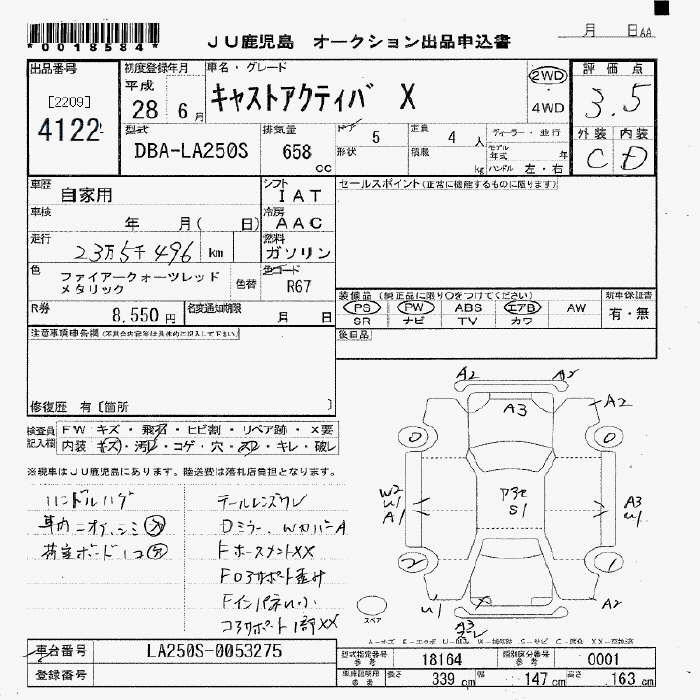 *0018584*
ＪＵ鹿児島　オークション出品申込書
月　日AA
出品番号
[2209]
4122
初度登録年月
平成
28 6月
車名・グレード
キャストアクティバ X
2WD
・4WD
評価点
3.5
外装 内装
C D
型式
DBA-LA250S
排気量
658
cc
ドア 5
形状
定員 4 人
積載 kg
ディーラー・並行
モデル年式 年
ハンドル 左・右
車歴
自家用
シフト
IAT
セールスポイント(正常に機能するものに限ります)
車検
年　月(　日)
冷房
AAC
走行
23万5千496 km
燃料
ガソリン
色
ファイアークォーツレッド
メタリック
色替
色コード
R67
装備品(純正品に限り○をつけてください)
PS PW ABS エアB AW
SR ナビ TV カワ
新車保証書
有・無
R券
8,550 円
名変通知期限
月　日
後日品
注意事項申告欄
修復歴 有〔箇所　〕
検査員
記入欄
FW キズ・飛石・ヒビ割・リペア跡・X要
内装 キズ・汚レ・コゲ・穴・スレ・キレ・破レ
※現車はＪＵ鹿児島にあります。陸送費は落札店負担となります。
ハンドルハゲ
車内ニオイ、シミ
荷室ボード
テールレンズワレ
Dミラー、WカバーA
FホースメントXX
コアサポート1部XX
A2 A2
A3
A2
0 0
W2
U1
A1
S1
A3
U1
2 1
X
U1
A2
A3
スペア
車台番号
LA250S-0053275
登録番号
型式指定番号
参考
18164
類別区分番号
参考
0001
車庫証明用
参考
長さ 339 cm
幅 147 cm
高さ 163 cm